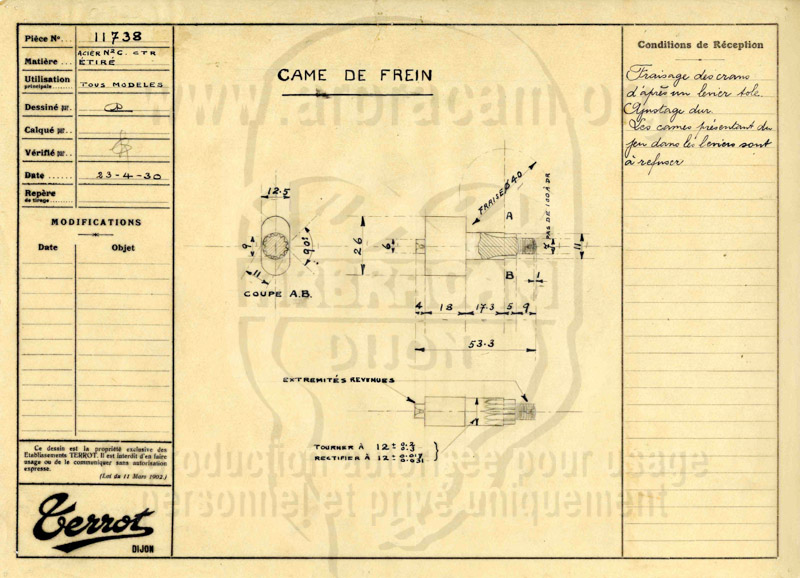 Pièce No... 11738
Matière... ACIER No2 C. CTR
ÉTIRÉ
Utilisation
principale...... TOUS MODELES
Dessiné par.
Calqué par..
Vérifié par..
Date ...... 23-4-30
Repère
de tirage......
MODIFICATIONS
Date Objet
Ce dessin est la propriété exclusive des
Etablissements TERROT. Il est interdit d'en faire
usage ou de le communiquer sans autorisation
expresse.
(Loi du 11 Mars 1902.)
Terrot
DIJON
CAME DE FREIN
12.5
9
90°
11
COUPE A.B.
26
6
FRAISE Ø 40
A
B
PAS DE 100 À DR
7
11
1
4 18 17.3 5 9
53.3
EXTREMITÉS REVENUES
TOURNER À 12 ± 0.2
0.3
RECTIFIER À 12 ± 0.017
0.031
Conditions de Réception
Fraisage des crans
d'après un levier tole.
Ajustage dur.
Les cames présentant du
jeu dans les leviers sont
à refuser
www.arbracam.o
ARBRACAM
DIJON
production autorisée pour usage
personnel et privé uniquement